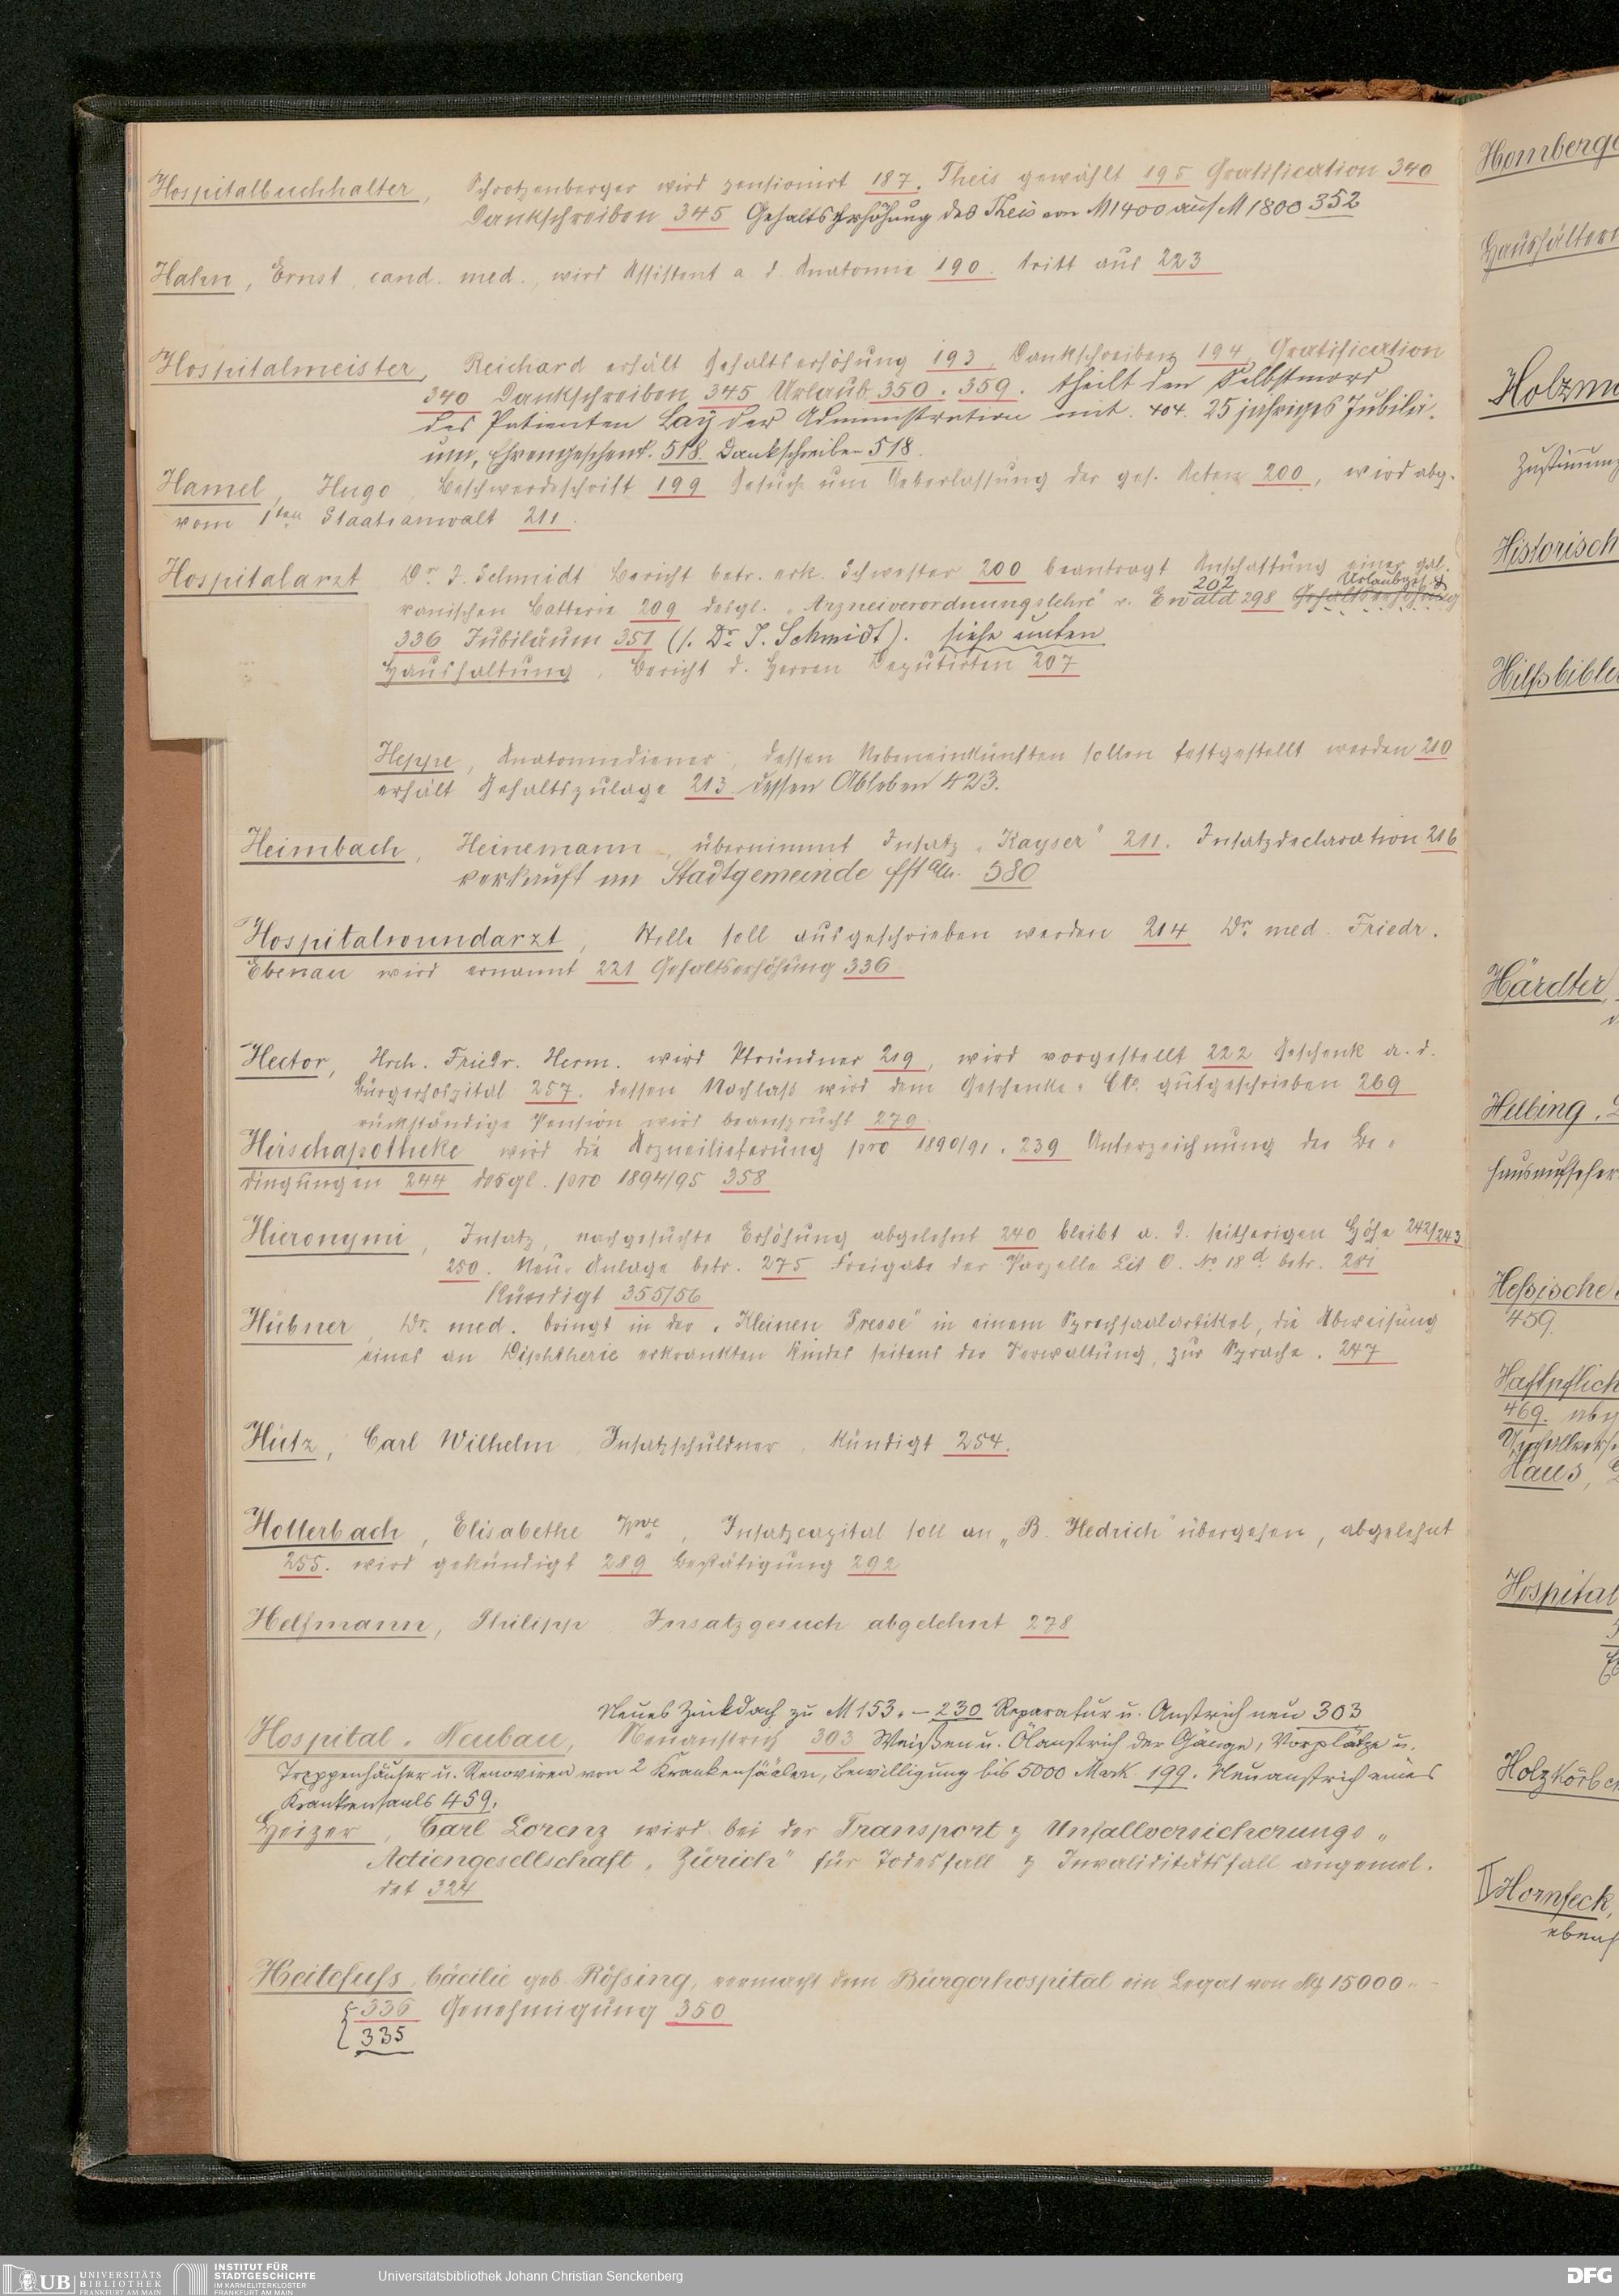 Hospitalbuchhalter, Schrotzenberger wird pensionirt 187. Theis gewählt 195 Gratification 340
Dankschreiben 345 Gehaltserhöhung des Theis von M 1400 auf M 1800 352
Hahn, Ernst, cand. med., wird Assistent a. d. Anatomie 190. tritt aus 223
Hospitalmeister, Reichard erhält Gehaltserhöhung 193, Dankschreiben 194, Gratification
340 Dankschreiben 345 Urlaub 350. 359. theilt den Selbstmord
des Patienten Lay der Administration mit. 404. 25jähriges Jubilä-
um, Ehrengeschenk. 518. Dankschreiben 518.
Hamel, Hugo, Beschwerdeschrift 199 Gesuch um Ueberlassung der ges. Acten 200, wird abg.
vom 1ten Staatsanwalt 211.
Hospitalarzt Dr. J. Schmidt Bericht betr. erk. Schwester 200 beantragt Anschaffung einer gal-
202 Urlaubges.
vanischen Batterie 209 desgl. „Arzneiverordnungslehre" v. Ewald 298 Gehaltserhöhung
336 Jubiläum 351 (s. Dr. J. Schmidt). siehe unten
Haushaltung, Bericht d. Herren Deputirten 207
Heppe, Anatomiediener, dessen Nebeneinkünften sollen festgestellt werden 210
erhält Gehaltszulage 213. dessen Ableben 423.
Heimbach, Heinemann, übernimmt Insatz „Kayser" 211. Insatzdeclaration 216
verkauft an Stadtgemeinde 580
Hospitalwundarzt, Stelle soll ausgeschrieben werden 214 Dr. med. Friedr.
Ebenau wird ernannt 221 Gehaltserhöhung 336
Hector, Hrch. Friedr. Herm. wird Pfründner 219, wird vorgestellt 222 Geschenk a. d.
Bürgerhospital 257. dessen Nachlaß wird dem Geschenke-Cto. gutgeschrieben 269
rückständige Pension wird beansprucht 279.
Hirschapotheke wird die Arzneilieferung pro 1890/91. 239 Unterzeichnung der Be-
dingungen 244 desgl. pro 1894/95 358
Hieronymi, Insatz, nachgesuchte Erhöhung abgelehnt 240 bleibt a. d. seitherigen Höhe 242/243
250. Neue Anlage betr. 275 Freigabe der Parzelle Lit O. No 18 d betr. 281
Kündigt 355/56
Hübner, Dr. med. bringt in der „Kleinen Presse" in einem Sprechsaalartikel, die Abweisung
eines an Diphtherie erkrankten Kindes seitens der Verwaltung, zur Sprache. 247
Hütz, Carl Wilhelm, Insatzschuldner, kündigt 254.
Hollerbach, Elisabethe Wwe, Insatzcapital soll an „B. Hedrich" übergehen, abgelehnt
255. wird gekündigt 289 Bestätigung 292
Helfmann, Philipp Insatzgesuch abgelehnt 278
Neues Zinkdach zu M 153.– 230 Reparatur u. Anstrich neu 303
Hospital-Neubau, Neuanstrich 303 Weißen u. Ölanstrich der Gänge, Vorplätze u.
Treppenhäuser u. Renoviren von 2 Krankensäälen, Bewilligung bis 5000 Mark 199. Neuanstrich eines
Krankensaals 459.
Heizer, Carl Lorenz wird bei der Transport & Unfallversicherungs-
Actiengesellschaft „Zürich" für Todesfall & Invaliditätsfall angemel-
det 324
Heitefuss, Cäcilie geb. Rößing, vermacht dem Bürgerhospital ein Legat von M 15000.-
336 Genehmigung 350
335
Homberge
Haushälteri
Holzm
Zustimmung
Historisch
Hilfsbible
Härdter,
Helbing,
hausaufseher
Hessische
459.
Haftpflich
469.
Haus,
Hospital
Holzkörbch
Hornfeck,
UB UNIVERSITÄTS
BIBLIOTHEK
FRANKFURT AM MAIN
INSTITUT FÜR
STADTGESCHICHTE
IM KARMELITERKLOSTER
FRANKFURT AM MAIN
Universitätsbibliothek Johann Christian Senckenberg
DFG